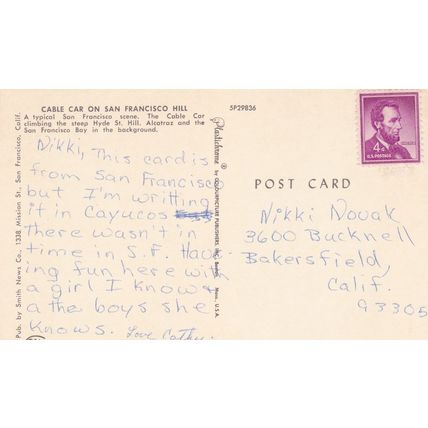 CABLE CAR ON SAN FRANCISCO HILL
A typical San Francisco scene. The Cable Car
climbing the steep Hyde St. Hill. Alcatraz and the
San Francisco Bay in the background.
5P29836
Pub. by Smith News Co., 1338 Mission St., San Francisco, Calif.
Plastichrome ® by COLOURPICTURE PUBLISHERS, INC., Boston, Mass., U.S.A.
Nikki, This card is
from San Francisco
but I'm writting
it in Cayucos
there wasn't in
time in S.F. Hav-
ing fun here with
a girl I know +
a the boys she
knows. Love Cathy
POST CARD
4¢
U.S. POSTAGE
Nikki Novak
3600 Bucknell
Bakersfield,
Calif.
93305